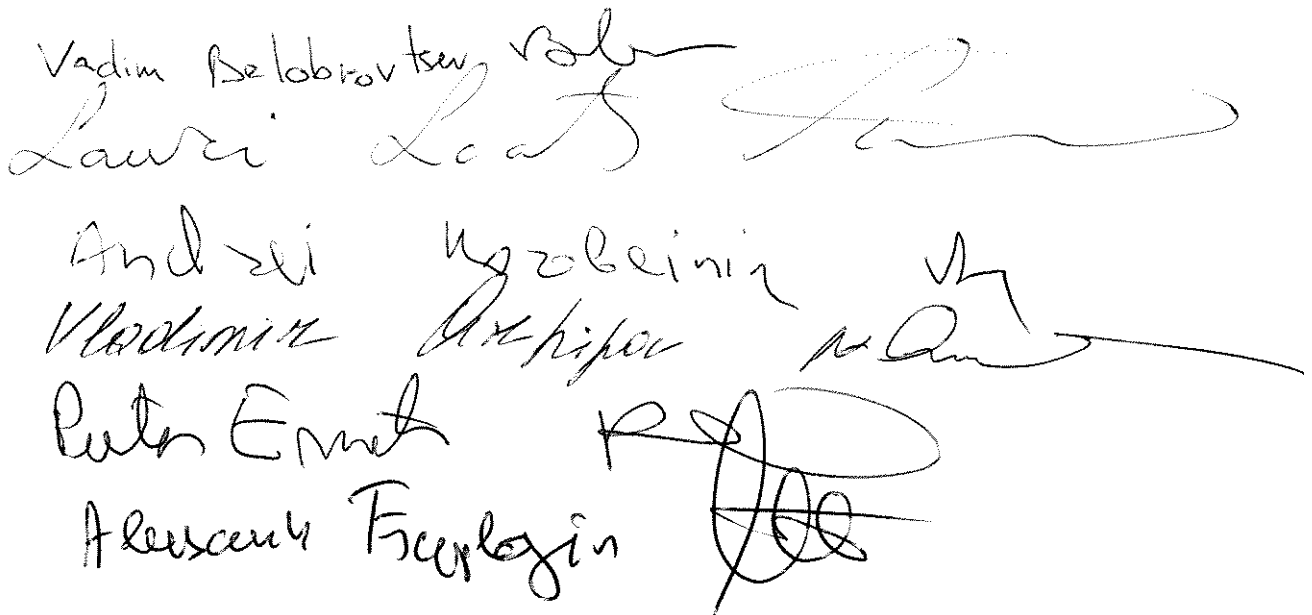 Vadim Belobrovtsev
Lauri Laats
Andrei Korobeinik
Vladimir Arhipov
Peeter Ernits
Aleksandr Tšaplõgin